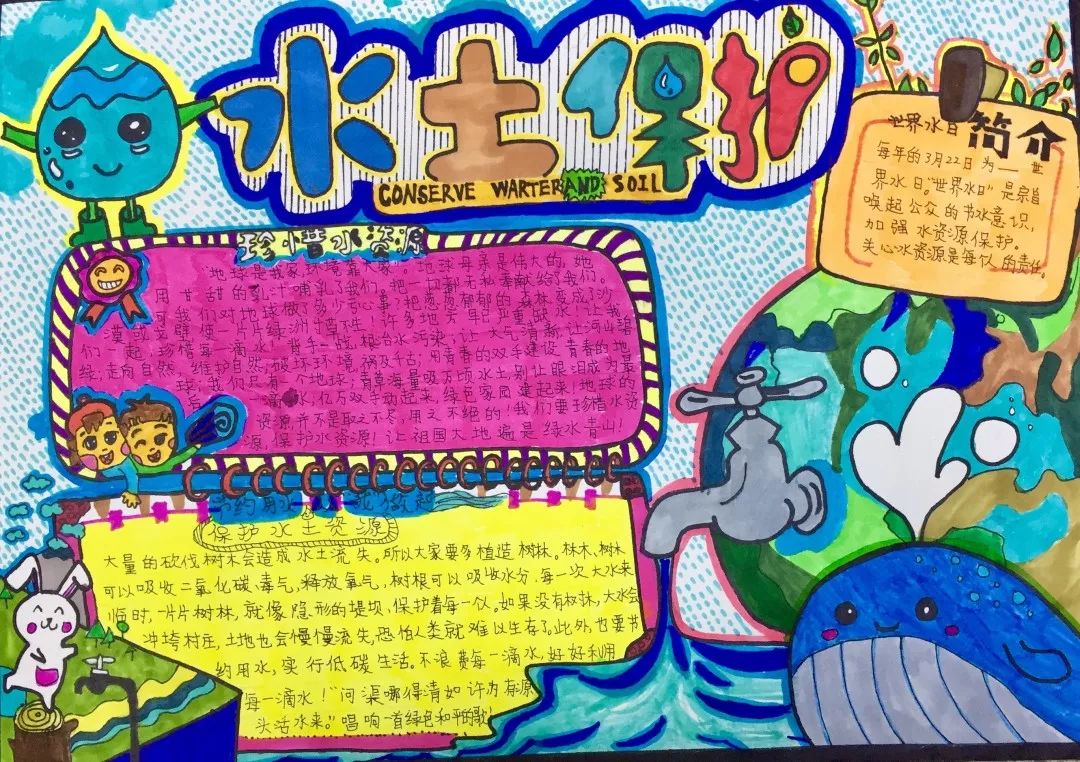 水土保护
CONSERVE WARTER AND SOIL
世界水日
简介
每年的3月22日为 世
界水日。"世界水日"是宗旨
唤起公众的书水意识,
加强水资源保护。
关心水资源是每位的责任。
珍惜水资源
地球是我家,环境靠大家。地球母亲是伟大的,她
用甘甜的乳汁哺乳了我们。把一切都无私奉献给了我们。
可我们对地球做了多少亏心事?把葱葱郁郁的森林变成了沙
漠或戈壁,使一片片绿洲寸草不生!许多地方早已严重缺水!让我
们一起,珍惜每一滴水!携手一战,根治水污染,让大气清新,让河山
绕,走向自然,维护自然,破坏环境,祸及千古;用青春的双手建设青春的地
球;我们只有一个地球;青草海量吸万顷水土,别让眼泪成为最
滴水,亿万双手动起来,绿色家园建起来!地球的
资源并不是取之不尽,用之不绝的!我们要珍惜水资
源,保护水资源!让祖国大地遍是绿水青山!
节约用水 从我做起
保护水土资源
大量的砍伐树木会造成水土流失。所以大家要多植造树林。林木、树木
可以吸收二氧化碳、毒气,释放氧气,树根可以吸收水分,每一次大水来
临时,一片片树林,就像隐形的堤坝,保护着每一位。如果没有树林,大水会
冲垮村庄,土地也会慢慢流失,恐怕人类就难以生存了。此外,也要节
约用水,实行低碳生活。不浪费每一滴水,好好利用
每一滴水!"问渠哪得清如许为有源
头活水来。"唱响一首绿色和平的歌!